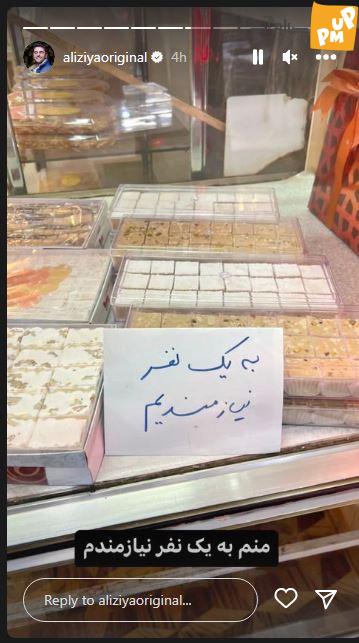 UP
PM
aliziyaoriginal 4h
به یک نفر
نیازمندیم
منم به یک نفر نیازمندم
Reply to aliziyaoriginal...